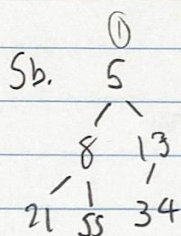 ①
5b. 5
8 13
21 55 34